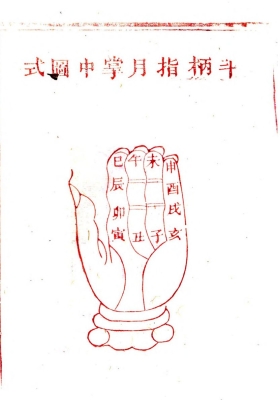 斗柄指月掌中圖式
申酉戌亥
未子
午丑
巳辰卯寅